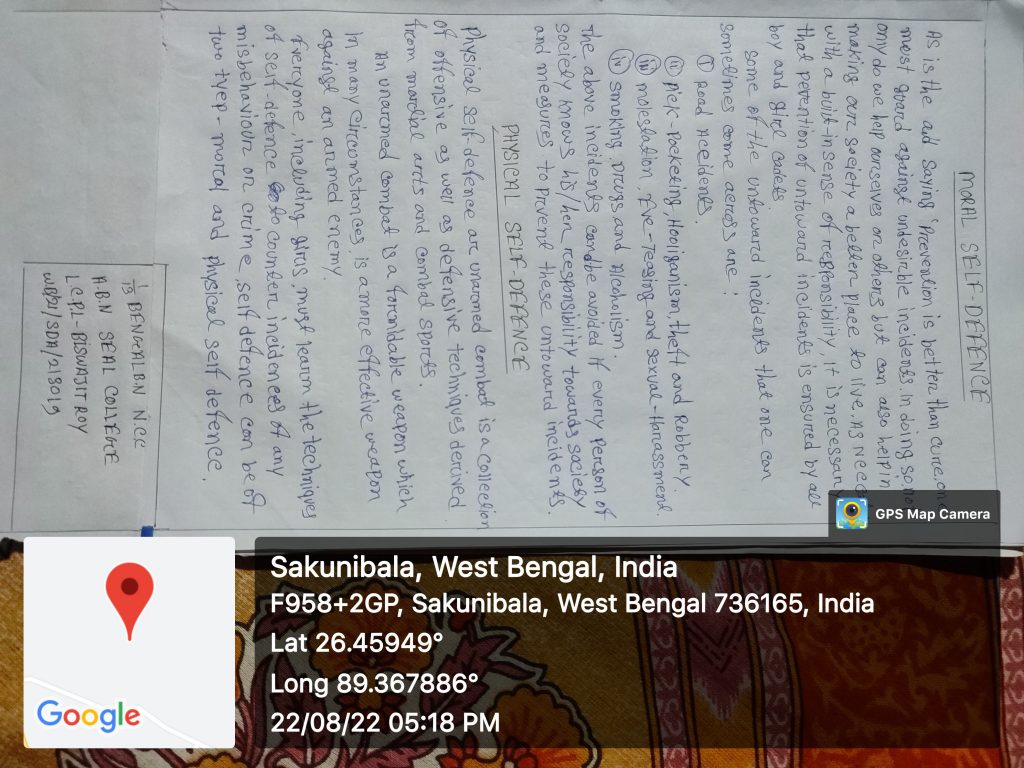 MORAL SELF-DEFENCE
As is the aid saying 'Prevention is better than cure. one
must guard against undesirble incidents, in doing so no
only do we help ourselves or others but can also help in
making our society a better place to live. As need
with a built-in sense of responsiblity, it is necessary
that pevention of untoward incidents is ensured by all
boy and girl cadets.
some of the untoward incidents that one can
sometimes come across are :
(i) Road Accidents
(ii) Pick-Pocketing, Hooliganism, theft and Robbery.
(iii) molestation, Eve-Teasing and sexual-Harassment
(iv) smoking, Drugs and Alcoholism.
The above incidents can be avoided if every person of
society knows his/her responsibility towards society
and measures to prevent these untoward incidents.
PHYSICAL SELF-DEFENCE
Physical self-defence or unarmed combat is a collection
of offensive as well as defensive techniques derived
from mardial arts and combat sports.
An unarmed combat is a formidable weapon which
in many circumstances is a more effective weapon
against an armed enemy.
Everyone, including girls, must learn the techniques
of self-defence to counter incidences of any
misbehaviour or crime, self defence can be of
two tyep - moral and physical self defence.
1/13 BENGAL BN NCC
ABN SEAL COLLEGE
LCPL-BISWAJIT ROY
WB21/SDA/213019
GPS Map Camera
Sakunibala, West Bengal, India
F958+2GP, Sakunibala, West Bengal 736165, India
Lat 26.45949°
Long 89.367886°
22/08/22 05:18 PM
Google